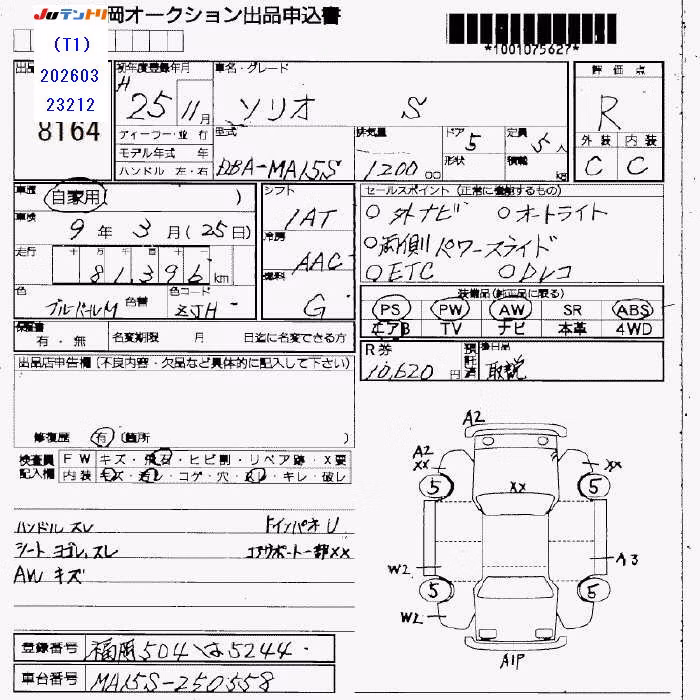 Juテントリ 岡オークション出品申込書
*1001075627*
(T1)
202603
23212
出品
8164
初年度登録年月
H 25 11月
ディーラー・並行
モデル年式 年
ハンドル 左・右
車名・グレード
ソリオ S
型式
DBA-MA15S
排気量
1200 cc
ドア
5
形状
定員
5人
積載
kg
評価点
R
外装 内装
C C
車歴
自家用 ( )
車検
9年3月(25日)
走行
十万千百十
81,396 km
色
色替
色コード
ZJH
シフト
IAT
冷房
AAC
燃料
G
セールスポイント (正常に機能するもの)
○外ナビ ○オートライト
○両側パワースライド
○ETC ○Dレコ
装備品(純正品に限る)
PS PW AW SR ABS
エアB TV ナビ 本革 4WD
保証書
有・無
名変期限 月 日迄に名変できる方
R券
10,620円
預託済
後日品
取説
出品店申告欄(不良内容・欠品など具体的に記入して下さい)
修復歴 有 (箇所 )
検査員記入欄
FW キズ・飛石・ヒビ割・リペア跡・X要
内装 キズ・汚レ・コゲ・穴・スレ・キレ・破レ
ハンドル スレ
シート ヨゴレ,スレ
AW キズ
コアサポート一部XX
A2
A2
XX
XX
XX
5
5
W2
A3
5
5
W2
A1P
登録番号 福岡504は5244
車台番号 MA15S-250558